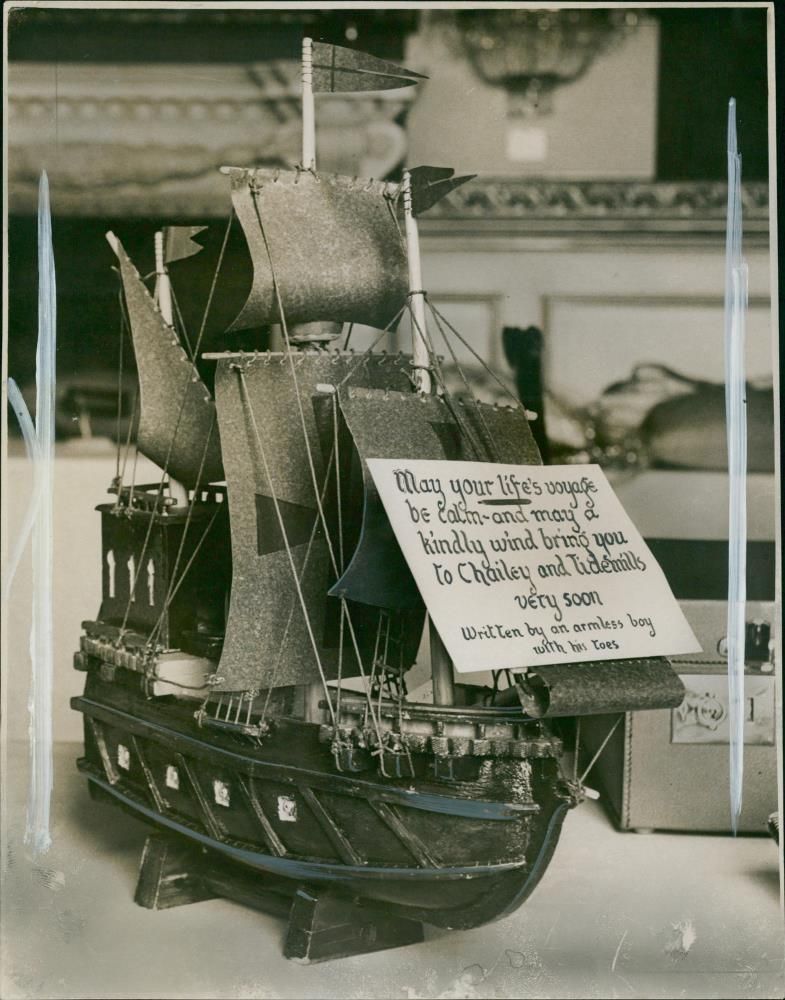 May your life's voyage
be calm-and may a
kindly wind bring you
to Chailey and Tidemills
very soon
Written by an armless boy
with his toes